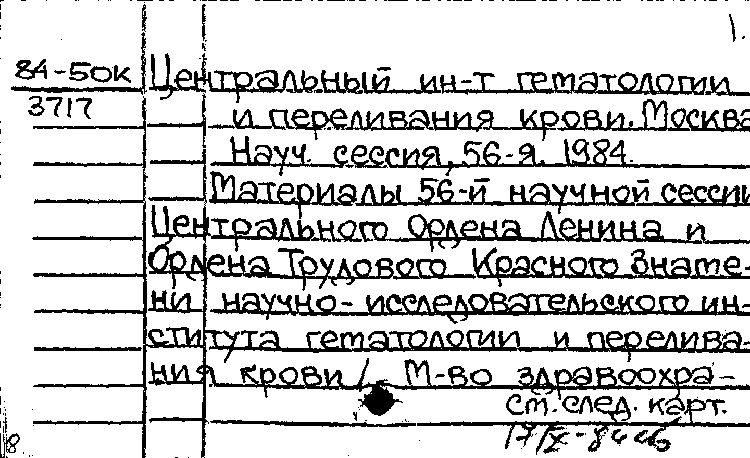 1.
84-50к Центральный ин-т гематологии
3717 и переливания крови. Москва
Науч. сессия, 56-я. 1984.
Материалы 56-й научной сессии
Центрального Ордена Ленина и
Ордена Трудового Красного Знаме-
ни научно-исследовательского ин-
ститута гематологии и перелива-
ния крови / М-во здравоохра-
см. след. карт.
8